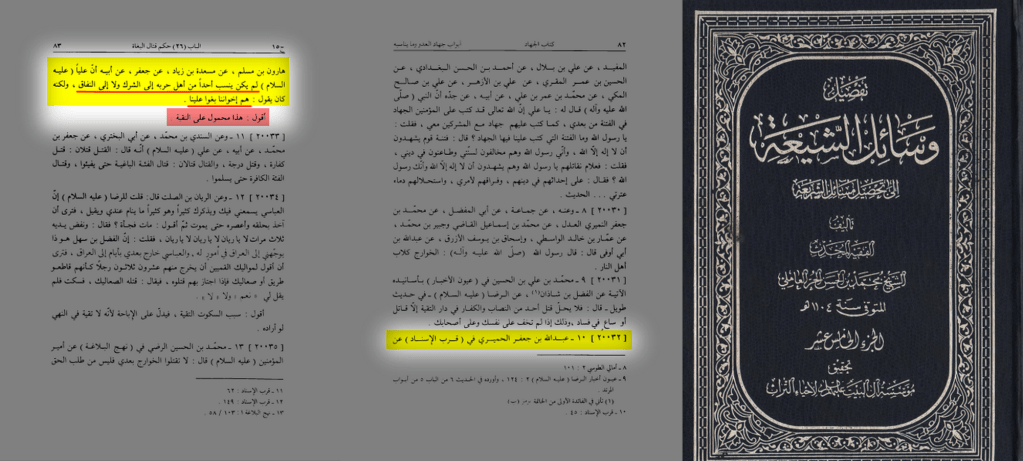 ٨٢ كتاب الجهاد أبواب جهاد العدو وما يناسبه
المفيد ، عن علي بن بلال ، عن أحمد بن الحسن البغدادي ، عن
الحسين بن عمر المقري ، عن علي بن الأزهر ، عن علي بن صالح
المكي ، عن محمّد بن عمر بن علي ، عن أبيه ، عن جدّه أنّ النبي ( صلّى
الله عليه وآله ) قال له : يا علي إنّ الله تعالى قد كتب على المؤمنين الجهاد
في الفتنة من بعدي ، كما كتب عليهم جهاد مع المشركين معي ، فقلت :
يا رسول الله وما الفتنة التي كتب علينا فيها الجهاد ؟ قال : فتنة قوم يشهدون
أن لا إله إلّا الله ، وأنّي رسول الله وهم مخالفون لسنّتي وطاعنون في ديني ،
فقلت : فعلام نقاتلهم يا رسول الله وهم يشهدون أن لا إله إلّا الله وأنّك رسول
الله ؟ فقال : على إحداثهم في دينهم ، وفراقهم لأمري ، واستحلالهم دماء
عترتي . . . الحديث .
[ ٢٠٠٣٠ ] ٨ ـ وعنه ، عن جماعة ، عن أبي المفضل ، عن محمّد بن
جعفر النميري العدل ، عن محمد بن إسماعيل القاضي وجبير بن محمد ،
عن عمّار بن خالد الواسطي ، وإسحاق بن يوسف الأزرق ، عن عبدالله بن
أبي أوفى قال : قال رسول الله ( صلّى الله عليه وآله ) : الخوارج كلاب
أهل النار .
[ ٢٠٠٣١ ] ٩ ـ محمّد بن علي بن الحسين في ( عيون الأخبار ) بأسانيده
الآتية عن الفضل بن شاذان(١) ، عن الرضا ( عليه السلام ) ـ في حديث
طويل ـ قال : فلا يحلّ قتل أحد من النصاب والكفار في دار التقية إلّا قاتل
أو ساع في فساد ، وذلك إذا لم تخف على نفسك وعلى أصحابك .
[ ٢٠٠٣٢ ] ١٠ ـ عبدالله بن جعفر الحميري في ( قرب الإسناد ) عن
٨ ـ أمالي الطوسي ٢ : ١٠١
٩ ـ عيون أخبار الرضا ( عليه السلام ) ٢ : ١٢٤ ، وأورده في الحديث ٦ من الباب ٥ من أبواب
(١) تأتي في الفائدة الأولى من الخاتمة
١٠ ـ قرب الإسناد : ٤٥ .
الباب (٢٦) حكم قتال البغاة ٨٣
هارون بن مسلم ، عن مسعدة بن زياد ، عن جعفر ، عن أبيه أنّ علياً ( عليه
السلام ) لم يكن ينسب أحداً من أهل حربه إلى الشرك ولا إلى النفاق ، ولكنّه
كان يقول : هم إخواننا بغوا علينا .
أقول : هذا محمول على التقية
[ ٢٠٠٣٣ ] ١١ ـ وعن السندي بن محمّد ، عن أبي البختري ، عن جعفر بن
محمّد ، عن أبيه ، عن علي ( عليه السلام ) أنّه قال : القتل قتلان : قتل
كفارة ، وقتل درجة ، والقتال قتالان : قتال الفئة الباغية حتى يفيئوا ، وقتال
الفئة الكافرة حتى يسلموا .
[ ٢٠٠٣٤ ] ١٢ ـ وعن الريان بن الصلت قال : قلت للرضا ( عليه السلام ) إنّ
العباسي يسمعني فيك ويذكرك كثيراً وهو كثيراً ما ينام عندي ويقيل ، فترى أن
آخذ بحلقه وأعصره حتى يموت ثمّ أقول : مات فجأة ؟ فقال : ونفض يديه
ثلاث مرات لا يا ريان لا يا ريان لا يا ريان ، فقلت : إنّ الفضل بن سهل هو ذا
يوجّهني إلى العراق في أُمور له ، والعباسي خارج بعدي بأيام إلى العراق ، فترى
أن أقول لمواليك القميين أن يخرج منهم عشرون ثلاثون رجلًا كأنّهم قاطعو
طريق أو صعاليك فإذا اجتاز بهم قتلوه ، فيقال : قتله الصعاليك ، فسكت فلم
يقل لي « نعم » ولا « لا » .
أقول : سبب السكوت التقية ، فيدلّ على الإباحة لأنّه لا تقية في النهي
لو أراده .
[ ٢٠٠٣٥ ] ١٣ ـ محمّد بن الحسين الرضي في ( نهج البلاغة ) عن أمير
المؤمنين ( عليه السلام ) قال : لا تقتلوا الخوارج بعدي فليس من طلب الحق
١١ ـ قرب الإسناد : ٦٢
١٢ ـ قرب الإسناد : ١٤٩ .
١٣ ـ نهج البلاغة ١ : ١٠٣ / ٥٨ .
تفصيل
وسائل الشيعة
إلى تحصيل مسائل الشريعة
تأليف
الفقيه المحدث
الشيخ محمد بن الحسن الحر العاملي
المتوفى سنة ١١٠٤هـ
الجزء الخامس عشر
تحقيق
مؤسسة آل البيت عليهم السلام لإحياء التراث